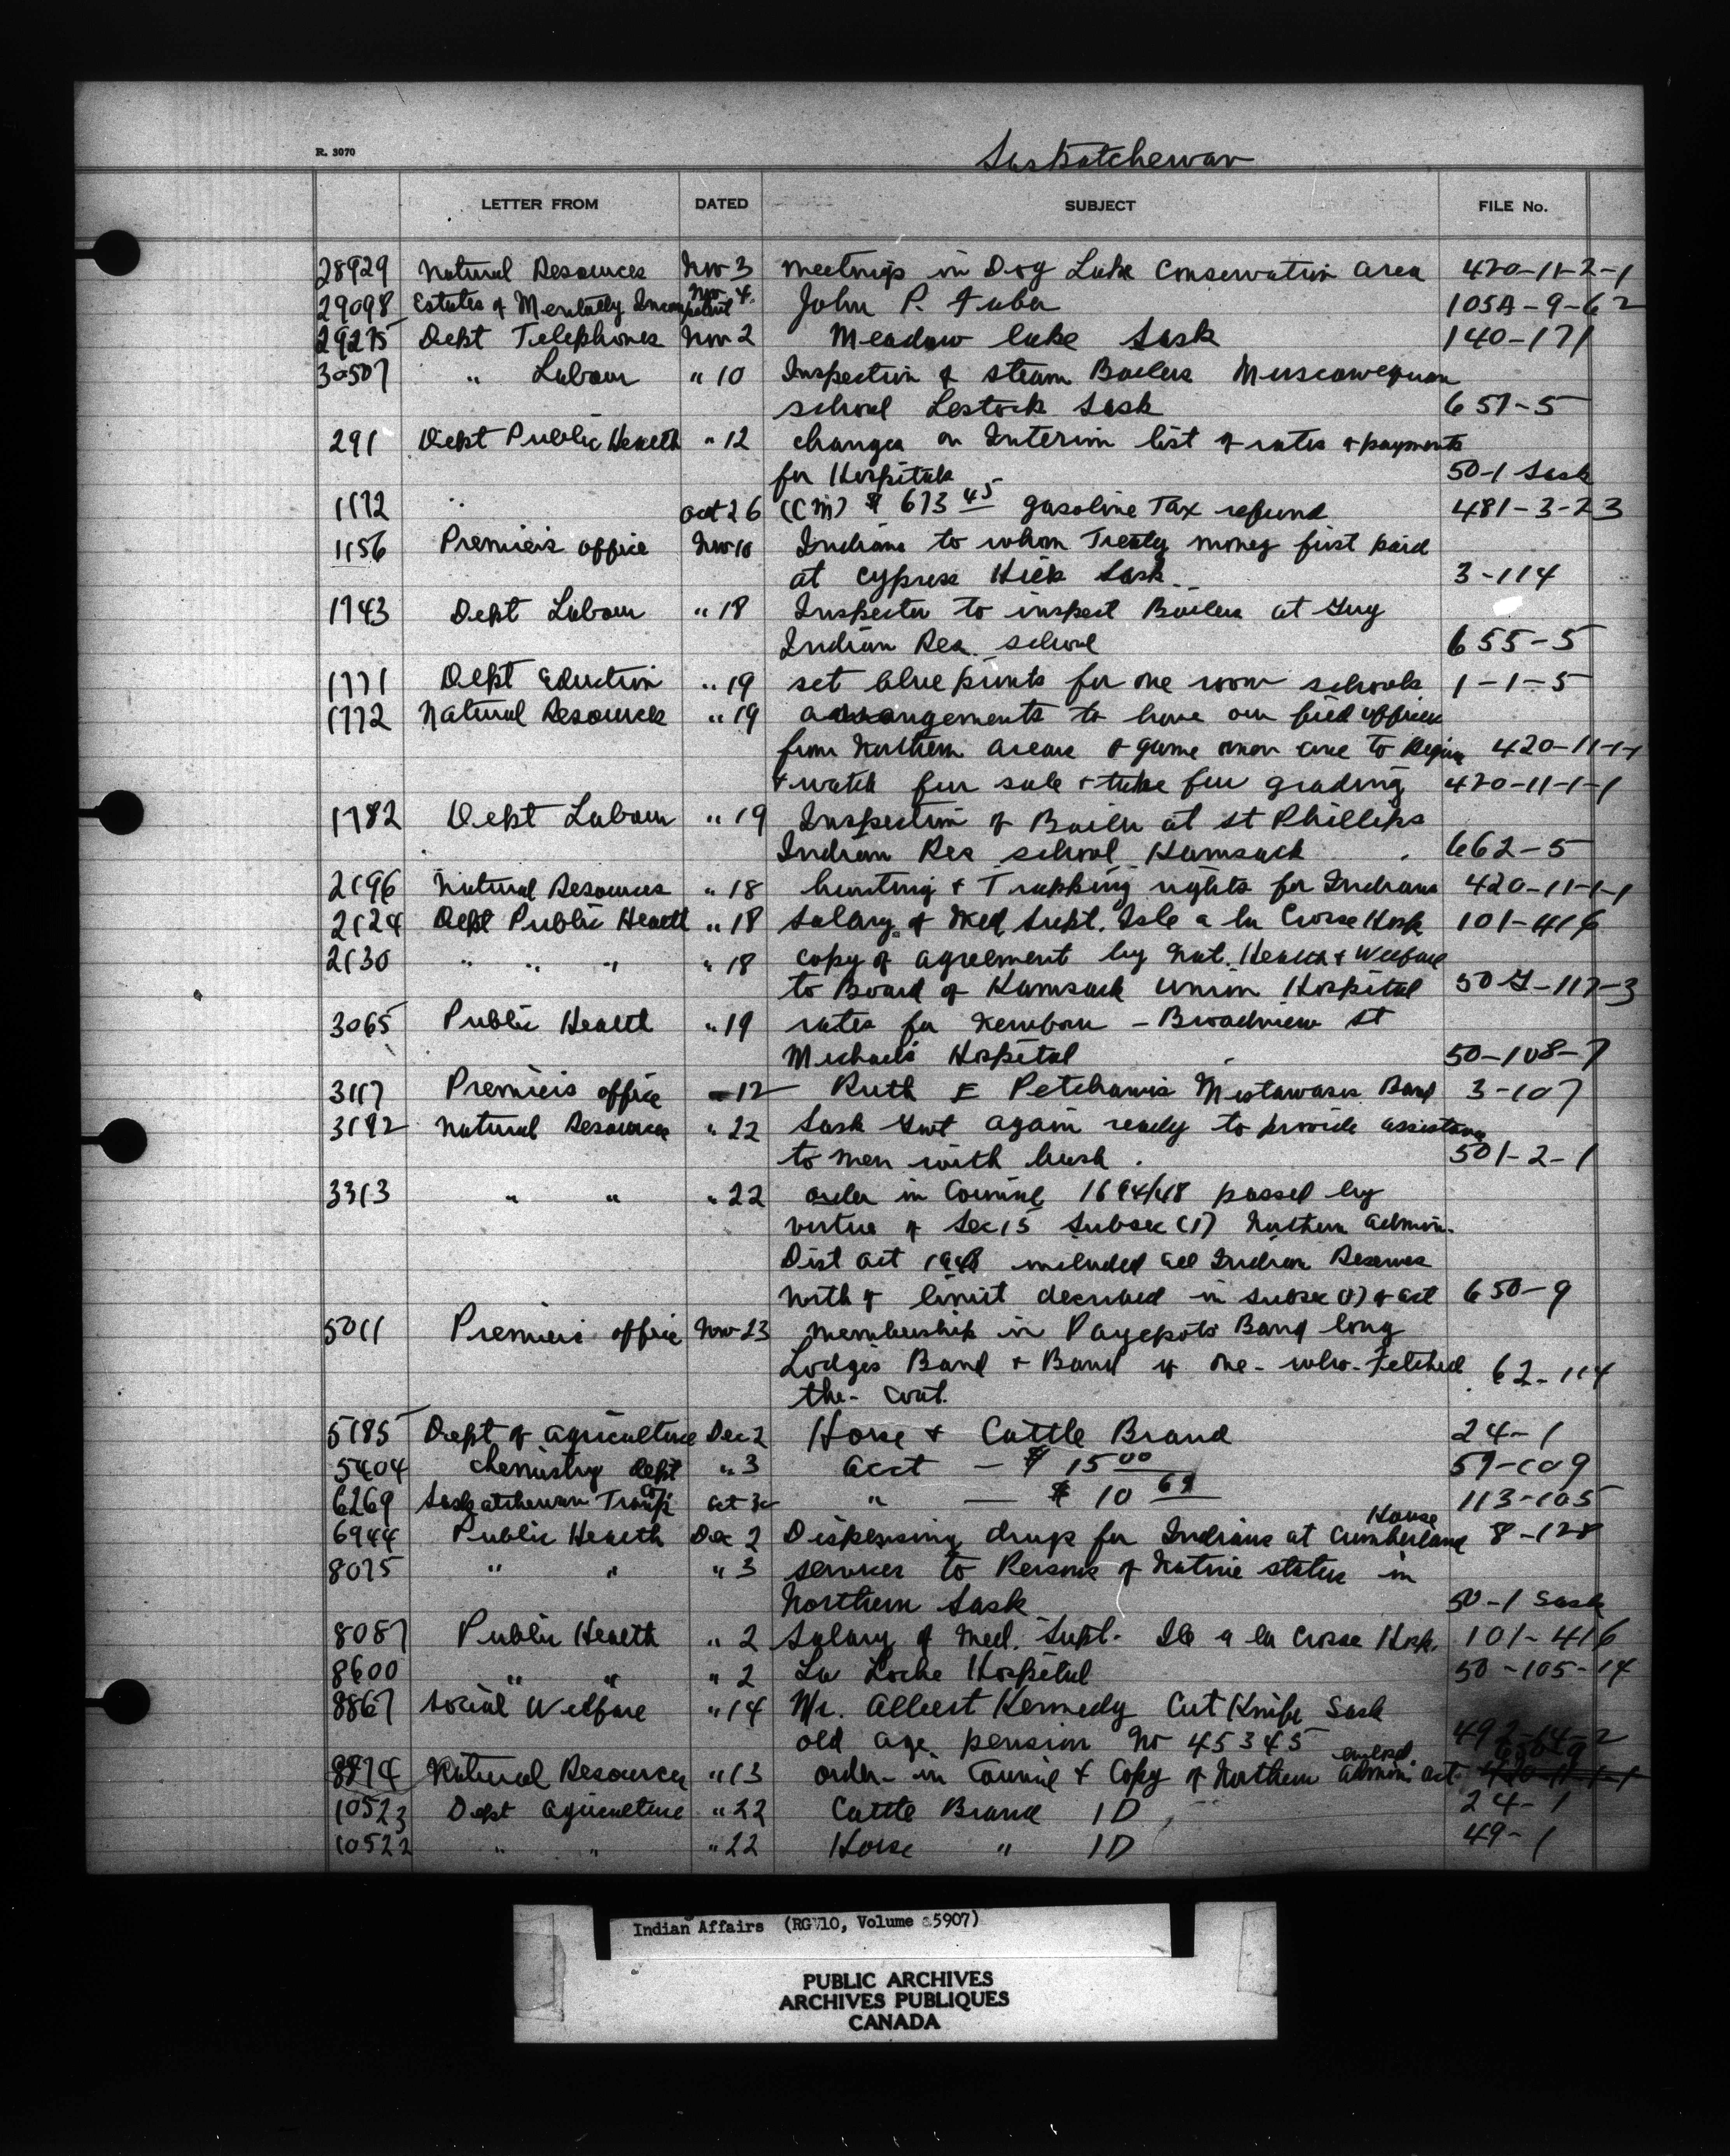 R. 3070
Saskatchewan
LETTER FROM DATED SUBJECT FILE No.
28929 Natural Resources Nov 3 meetings in Dog Lake Conservation area 420-11-2-1
29098 Estates of Mentally Incompetent Nov 4. John P. 105A-9-62
29275 Dept Telephones Nov 2 Meadow lake Sask 140-171
30507 " Labour " 10 Inspection of steam Boilers Muscowequan
school Lestock Sask 651-5
291 Dept Public Health " 12 changes on Interim list of rates & payments
for Hospitals 50-1 Sask
1172 " Oct 26 (CM) $ 673 45 gasoline Tax refund 481-3-23
1156 Premiers office Nov 10 Indians to whom Treaty money first paid
at Cypress Hills Sask. 3-114
1743 Dept Labour " 18 Inspector to inspect Boilers at Guy
Indian Res. school 655-5
1771 Dept Eduction " 19 set blue prints for one room schools 1-1-5
1772 Natural Resources " 19 arrangements to have our field officers
from Northern areas & game men come to Regina 420-11-1-1
& watch fur sale & take fur grading 420-11-1-1
1782 Dept Labour " 19 Inspection of Boiler at St Phillips
Indian Res school Kamsack 662-5
2196 Natural Resources " 18 hunting & Trapping rights for Indians 420-11-1-1
2124 Dept Public Health " 18 salary of Med Supt. Isle a la Crosse Hosp 101-416
2130 " " " " 18 copy of agreement by Nat. Health & Welfare
to Board of Kamsack Union Hospital 50 -117-3
3065 Public Health " 19 rates for Newborn - Broadview St
Michael's Hospital 50-108-7
3117 Premiers office 12 Ruth E Petchawis Mistawasis Band 3-107
3192 Natural Resources " 22 Sask Govt again ready to provide assistance
to men with bush. 501-2-1
3313 " " " 22 order in Council 1694/48 passed by
virtue of Sec 15 Subsec (1) Northern admin.
Dist act 1948 included all Indian Reserves
North of limit described in subsec (1) of act 650-9
5011 Premiers office Nov 23 membership in Payepots Band long
Lodges Band & Band of one-who-Fetched
the-coat. 62-114
5185 Dept of agriculture Dec 2 Horse & Cattle Brand 24-1
5404 Chemistry dept " 3 acct - $ 15 00 57-109
6269 Saskatchewan Transp Co Oct 30 " — $ 10 69 113-105
6944 Public Health Dec 2 Dispensing drugs for Indians at Cumberland House 8-128
8075 " " " 3 services to Persons of Native status in
Northern Sask 50-1 Sask
8087 Public Health " 2 Salary of Med. Supt. Ile a la Crosse Hosp. 101-416
8600 " " " 2 La Loche Hospital 50-105-14
8867 Social Welfare " 14 Mr. Albert Kennedy Cut Knife Sask
old age pension No 45345 492-64-2
8874 Natural Resources " 13 order-in Council & Copy of Northern admin. act enclosed. 650-9 420-11-1-1
10523 Dept agriculture " 22 Cattle Brand 1D 24-1
10522 " " " 22 Horse " 1D 49-1
Indian Affairs (RG 10, Volume 5907)
PUBLIC ARCHIVES
ARCHIVES PUBLIQUES
CANADA